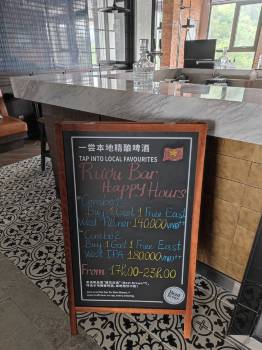 一尝本地精酿啤酒
TAP INTO LOCAL FAVOURITES
Rượu Bar
Happy Hours
Combo 1
Buy 1 Get 1 Free East
West Pilsner 140.000VND++
Combo 2
Buy 1 Get 1 Free East
West IPA 180.000VND++
From 17h00-23h00